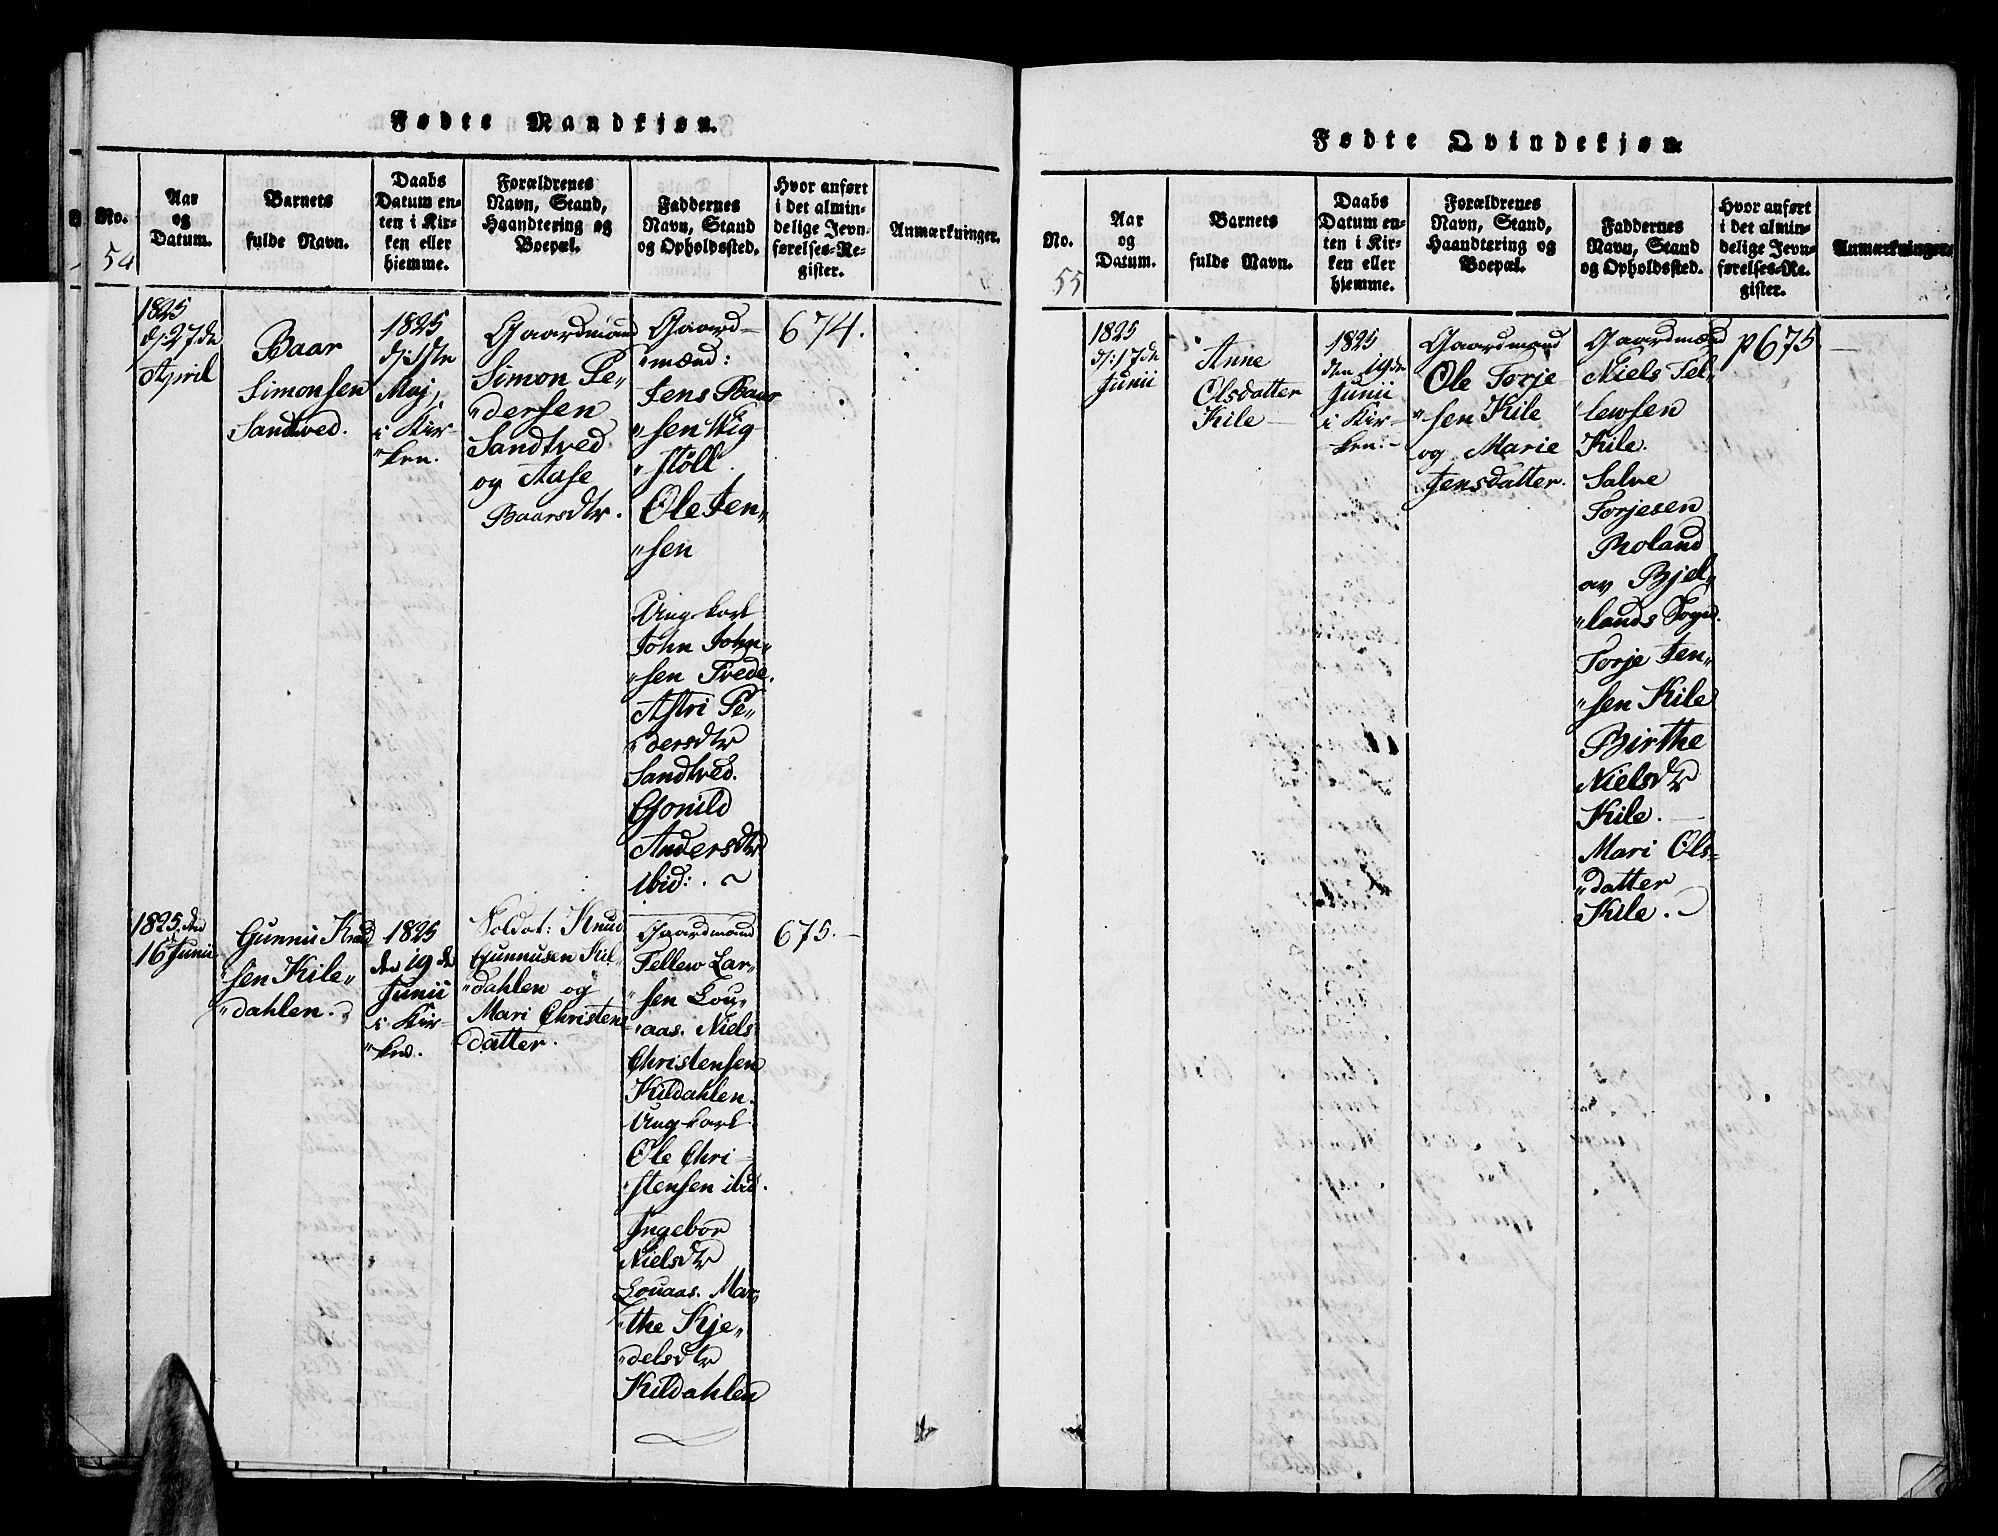 Fødte Mandkjøn.
No.
54
Aar
og
Datum.
Barnets
fulde Navn.
Daabs
Datum en-
ten i Kir-
ken eller
hjemme.
Forældrenes
Navn, Stand,
Haandtering og
Boepæl.
Faddernes
Navn, Stand
og Opholdssted.
Hvor anført
i det almin-
delige Jevn-
førelses-Re-
gister.
Anmærkninger.
1825
d: 27de
April
Baar
Simonsen
Sandtved.
1825
d: 1ste
Maj,
i Kir-
"ken.
Gaardmand
Simon Pe-
"dersen
Sandtved
og Aase
Baarsdtr.
Gaard-
"mænd:
Jens Baar
"sen
"støll.
Ole Jen-
"sen
Ungkarl
John John-
"sen Trede.
Astri Pe-
"dersdtr
Sandtved.
Gonild
Andersdtr
ibid:.
674.
1825 den
16 Junii
Gunnu Knud
"sen Kile-
"dahlen.
1825
den 19de
Junii
i Kir-
"ken.
Soldat: Knud
Gunnusen Kil-
"dahlen og
Mari Christens
datter.
Gaardmænd
Tellew Lar-
"sen Lou-
"aas. Niels
Christensen
Kildahlen.
Ungkarl
Ole Chri-
"stensen ibid.
Ingebor
Nielsdtr
Louaas. Mar-
"the Kje-
"delsdtr
Kildahlen
675.
Fødte Qvindekjøn.
No.
55
Aar
og
Datum.
Barnets
fulde Navn.
Daabs
Datum en-
ten i Kir-
ken eller
hjemme.
Forældrenes
Navn, Stand,
Haandtering og
Boepæl.
Faddernes
Navn, Stand
og Opholdssted.
Hvor anført
i det almin-
delige Jevn-
førelses-Re-
gister.
Anmærkninger.
1825
d: 17de
Junii
Anne
Olsdatter
Kile
1825
den 19de
Junii
i Kir-
ken.
Gaardmand
Ole Torje-
"sen Kile
og Marie
Jensdatter.
Gaardmænd
Niels Tel-
"lewsen
Kile.
Salve
Torjesen
Roland
av Bjel-
"lands Sogn.
Torje Jen-
"sen Kile
Birthe
Nielsdtr
Kile.
Mari Ols-
"datter
Kile.
p 675